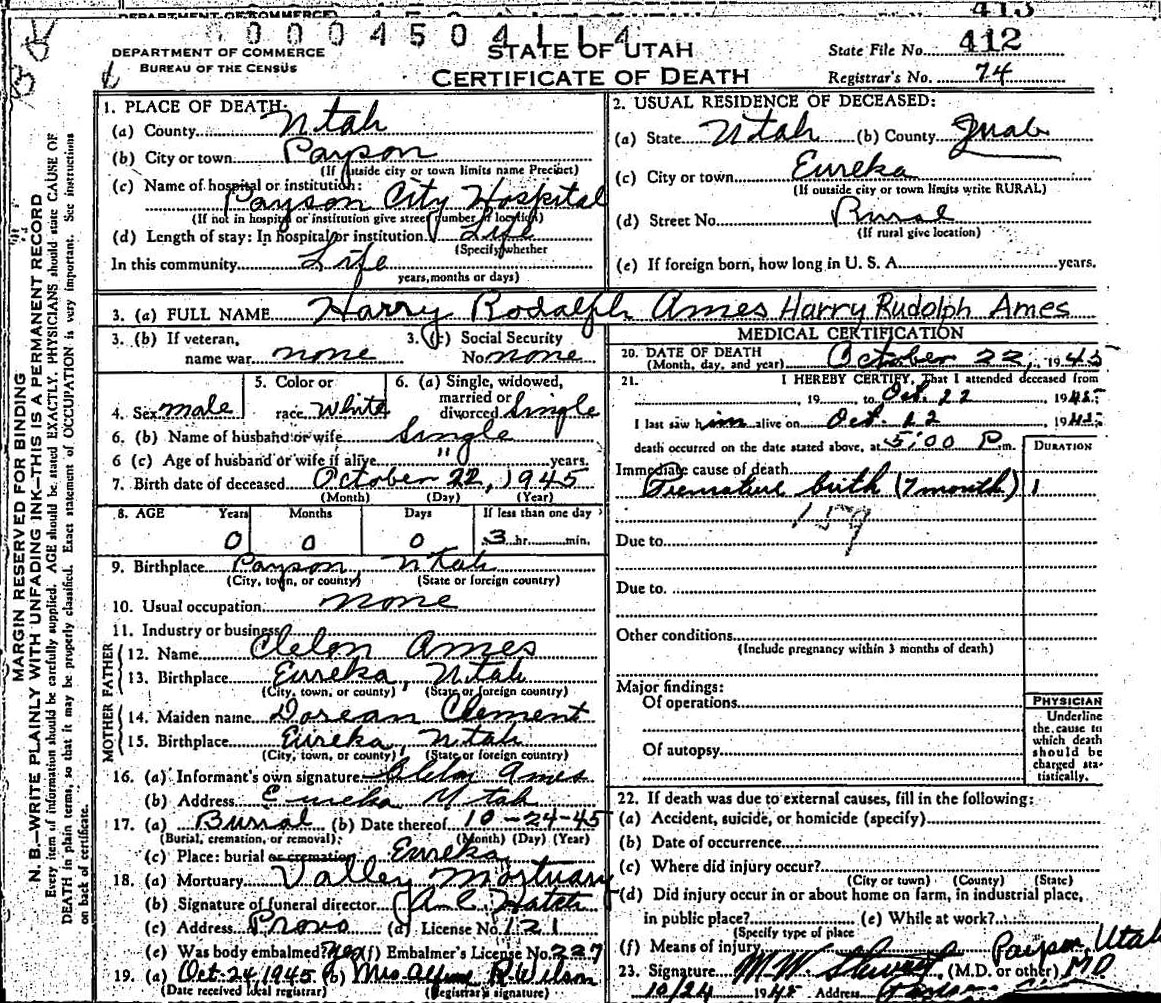 413
0 0 0 4 5 0 4 1 1 4
DEPARTMENT OF COMMERCE
BUREAU OF THE CENSUS
STATE OF UTAH
CERTIFICATE OF DEATH
State File No. 412
Registrar's No. 74
MARGIN RESERVED FOR BINDING
N. B.—WRITE PLAINLY WITH UNFADING INK—THIS IS A PERMANENT RECORD
Every item of information should be carefully supplied. AGE should be stated EXACTLY. PHYSICIANS should state CAUSE OF
DEATH in plain terms, so that it may be properly classified. Exact statement of OCCUPATION is very important. See instructions
on back of certificate.
1. PLACE OF DEATH:
(a) County Utah
(b) City or town Payson
(If outside city or town limits name Precinct)
(c) Name of hospital or institution:
Payson City Hospital
(If not in hospital or institution give street number or location)
(d) Length of stay: In hospital or institution Life
(Specify whether
In this community Life
years, months or days)
2. USUAL RESIDENCE OF DECEASED:
(a) State Utah (b) County Juab
(c) City or town Eureka
(If outside city or town limits write RURAL)
(d) Street No. Rural
(If rural give location)
(e) If foreign born, how long in U. S. A. years.
3. (a) FULL NAME Harry Rodalph Ames Harry Rudolph Ames
3. (b) If veteran,
name war none
3. (c) Social Security
No none
4. Sex male
5. Color or
race White
6. (a) Single, widowed,
married or
divorced Single
6. (b) Name of husband or wife Single
6 (c) Age of husband or wife if alive " years.
7. Birth date of deceased October 22, 1945
(Month) (Day) (Year)
8. AGE Years Months Days If less than one day
0 0 0 3 hr. min.
9. Birthplace Payson, Utah
(City, town, or county) (State or foreign country)
10. Usual occupation none
11. Industry or business
FATHER
12. Name Clelon Ames
13. Birthplace Eureka, Utah
(City, town, or county) (State or foreign country)
MOTHER
14. Maiden name Dorean Clement
15. Birthplace Eureka, Utah
(City, town, or county) (State or foreign country)
16. (a) Informant's own signature Clelon Ames
(b) Address Eureka Utah
17. (a) Burial (b) Date thereof 10-24-45
(Burial, cremation, or removal) (Month) (Day) (Year)
(c) Place: burial or cremation Eureka
18. (a) Mortuary Valley Mortuary
(b) Signature of funeral director A. C. Hatch
(c) Address Provo (d) License No. 121
(e) Was body embalmed? Yes (f) Embalmer's License No. 227
19. (a) Oct 24, 1945 (b) Mrs R. Wilson
(Date received local registrar) (Registrar's signature)
MEDICAL CERTIFICATION
20. DATE OF DEATH
(Month, day, and year) October 22, 1945
21. I HEREBY CERTIFY, That I attended deceased from
, 19 , to Oct. 22 1945
I last saw him alive on Oct. 22 , 1945
death occurred on the date stated above, at 5:00 P.m.
DURATION
Immediate cause of death
Premature birth (7 month) 1
159
Due to
Due to
Other conditions
(Include pregnancy within 3 months of death)
Major findings:
Of operations
Of autopsy
PHYSICIAN
Underline
the cause to
which death
should be
charged sta-
tistically.
22. If death was due to external causes, fill in the following:
(a) Accident, suicide, or homicide (specify)
(b) Date of occurrence
(c) Where did injury occur?
(City or town) (County) (State)
(d) Did injury occur in or about home on farm, in industrial place,
in public place? (e) While at work?
(Specify type of place
(f) Means of injury Payson, Utah
23. Signature M. W. Stewart, (M.D. or other) MD
10/24 1945 Address Payson